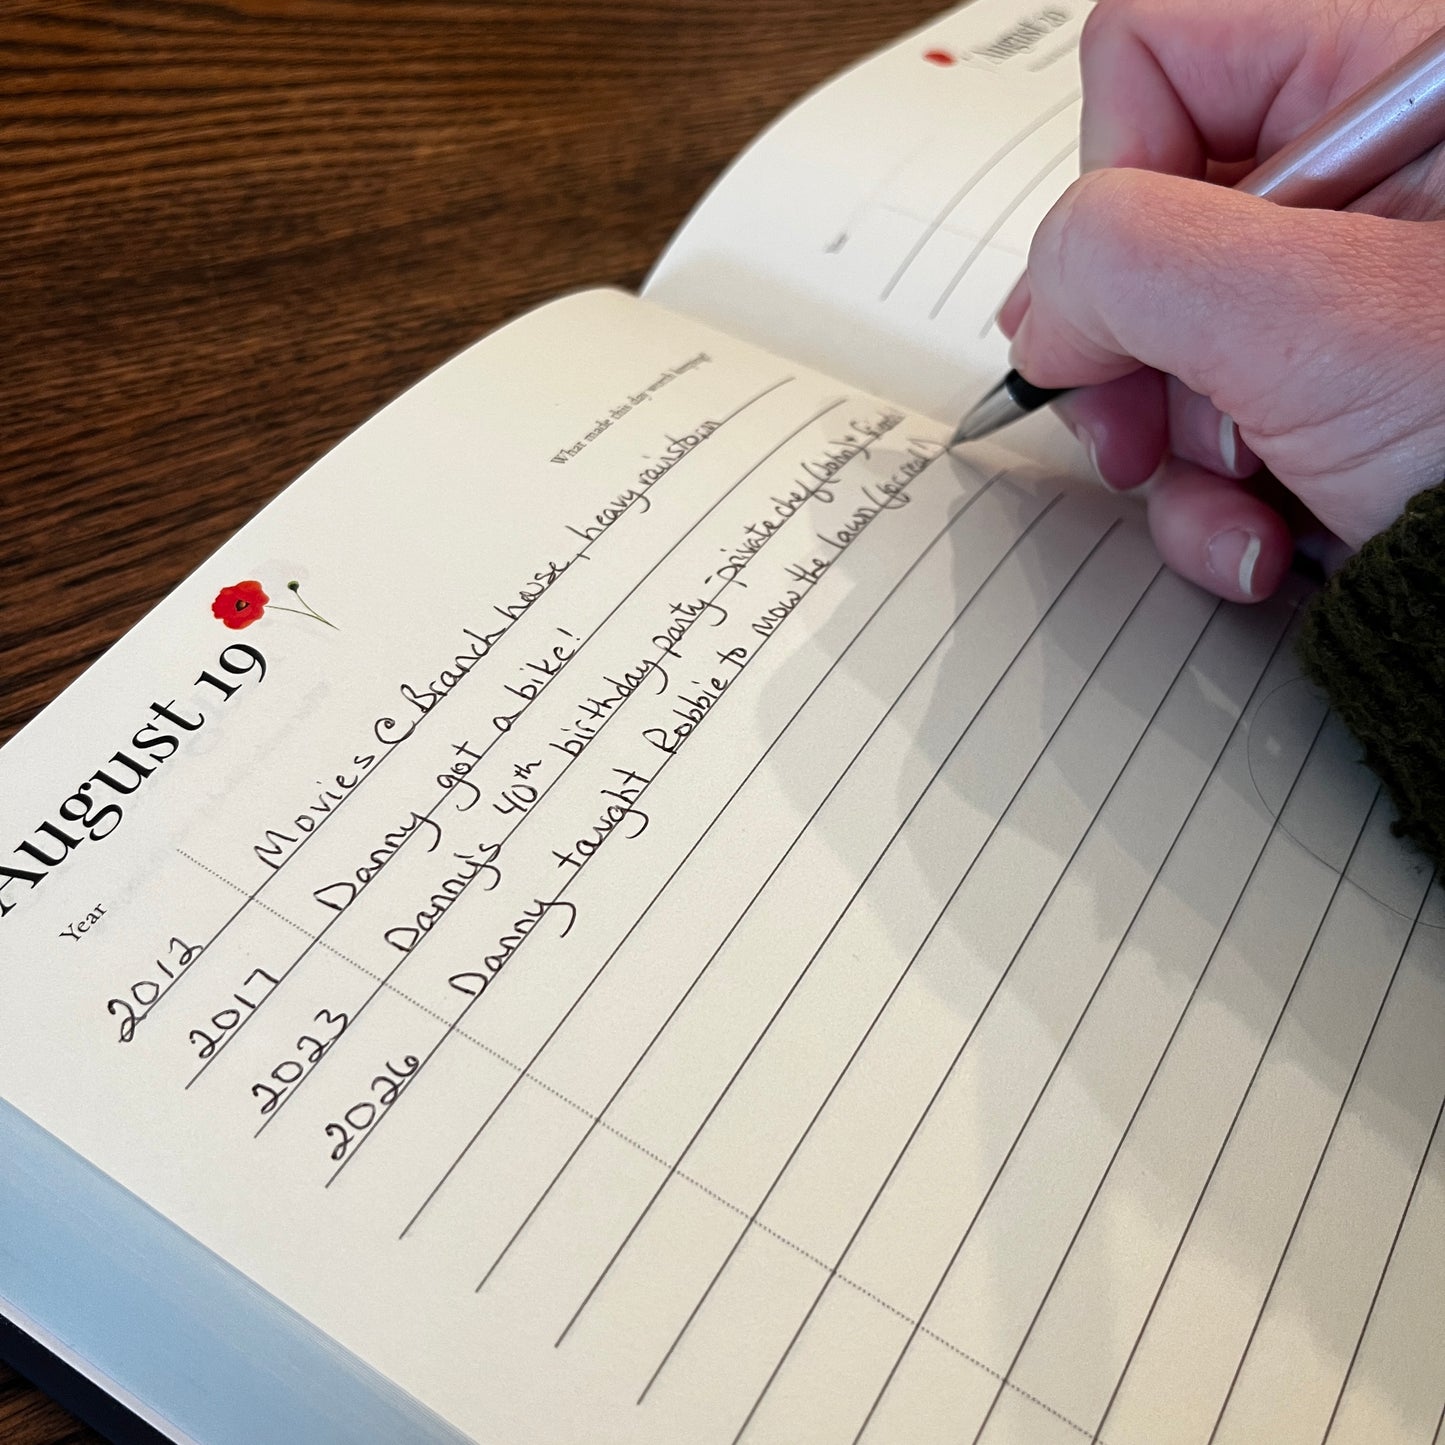 August 20
August 19
Year What made this day worth keeping?
2012 Movies @ Branch house, heavy rainstorm
2017 Danny got a bike!
2023 Danny's 40th birthday party - private chef (John) + friends
2026 Danny taught Robbie to mow the lawn (for real!)